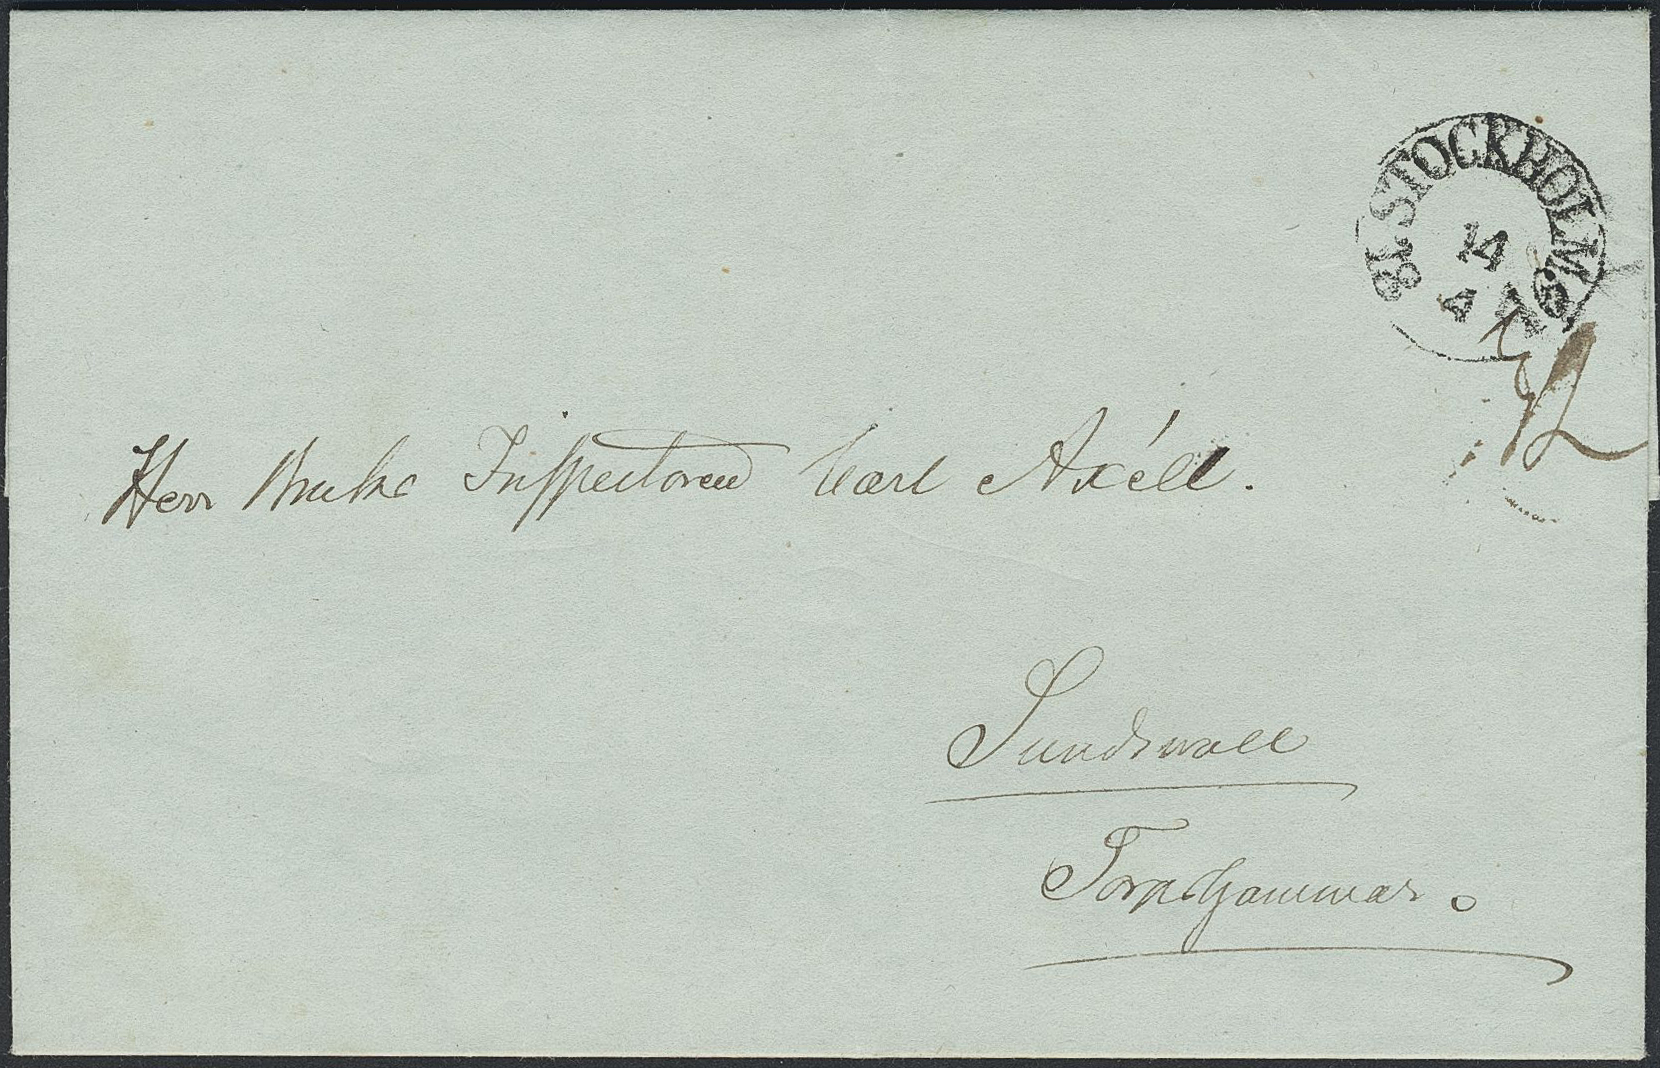 STOCKHOLM
14
4
Herr Bruks Inspectoren Carl Axéll.
Sundswall
Torpshammar.